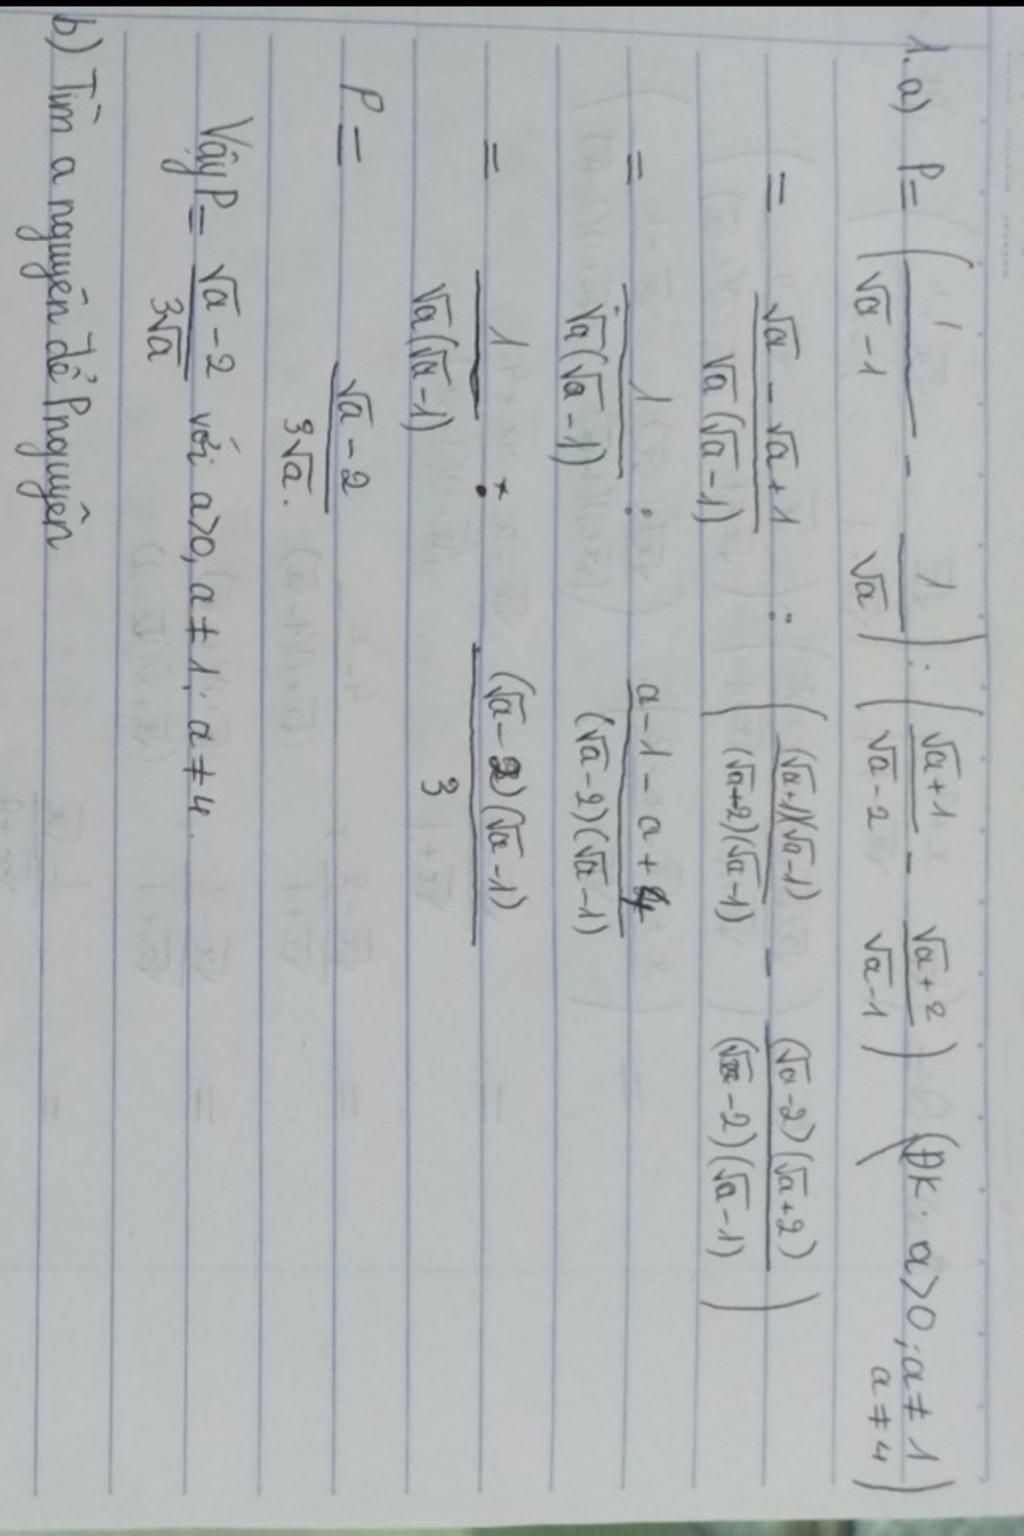 1. a) P = (1/(√a - 1) - 1/√a) : ((√a + 1)/(√a - 2) - (√a + 2)/(√a - 1)) (ĐK: a > 0; a ≠ 1 a ≠ 4)
= (√a - √a + 1)/(√a (√a - 1)) : (((√a + 1)(√a - 1))/((√a + 2)(√a - 1)) - ((√a - 2)(√a + 2))/((√a - 2)(√a - 1)))
= 1/(√a (√a - 1)) : (a - 1 - a + 4)/((√a - 2)(√a - 1))
= 1/(√a (√a - 1)) . ((√a - 2)(√a - 1))/3
P = (√a - 2)/(3√a).
Vậy P = (√a - 2)/(3√a) với a > 0, a ≠ 1; a ≠ 4.
b) Tìm a nguyên để P nguyên